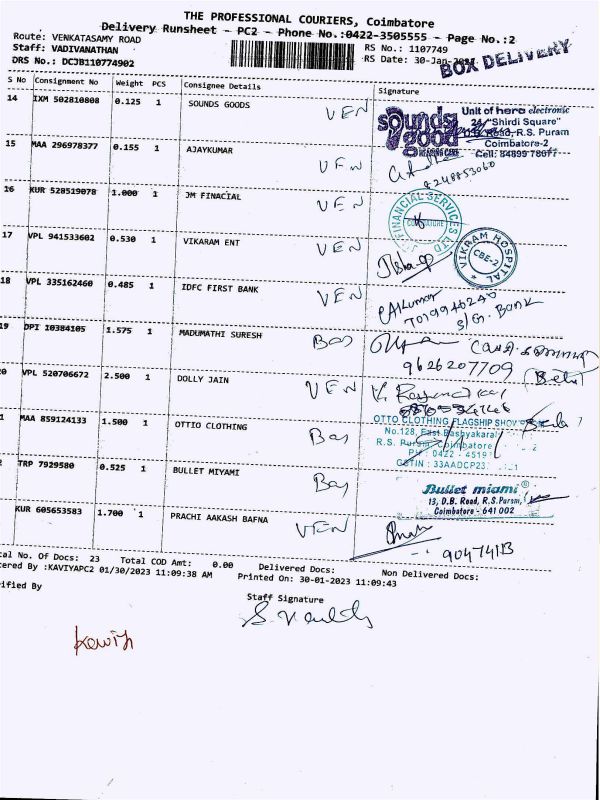 THE PROFESSIONAL COURIERS, Coimbatore
Delivery Runsheet - PC2 - Phone No.:0422-3505555 - Page No.:2
Route: VENKATASAMY ROAD
RS No.: 1107749
Staff: VADIVANATHAN
RS Date: 30-Jan-
DRS No.: DCJB110774902
BOX DELIVERY
S No Consignment No Weight PCS Consignee Details Signature
14 IXM 502810808 0.125 1 SOUNDS GOODS VEN
sounds good
Unit of hero electronic
"Shirdi Square"
Road, R.S. Puram
Coimbatore-2
Cell: 84899 78677
15 MAA 296978377 0.155 1 AJAYKUMAR VEN
8248853060
16 KUR 528519078 1.000 1 JM FINACIAL VEN
FINANCIAL SERVICES LTD
17 VPL 941533602 0.530 1 VIKARAM ENT VEN
VIKRAM HOSPITAL
CBE-2
18 VPL 335162460 0.485 1 IDFC FIRST BANK VEN
S/G. BANK
19 DPI 10384105 1.575 1 MADUMATHI SURESH
9626207709
0 VPL 520706672 2.500 1 DOLLY JAIN VEN
1 MAA 859124133 1.500 1 OTTIO CLOTHING
OTTO CLOTHING FLAGSHIP
No.128, East Bashyakaral
R.S. Puram, Coimbatore
PH : 0422 - 4519
GSTIN : 33AADCP23
2 TRP 7929580 0.525 1 BULLET MIYAMI
Bullet miami ®
13, D.B. Road, R.S.Puram,
Coimbatore - 641 002
KUR 605653583 1.700 1 PRACHI AAKASH BAFNA VEN
tal No. Of Docs: 23 Total COD Amt: 0.00 Delivered Docs: Non Delivered Docs:
tered By :KAVIYAPC2 01/30/2023 11:09:38 AM Printed On: 30-01-2023 11:09:43
rified By Staff Signature